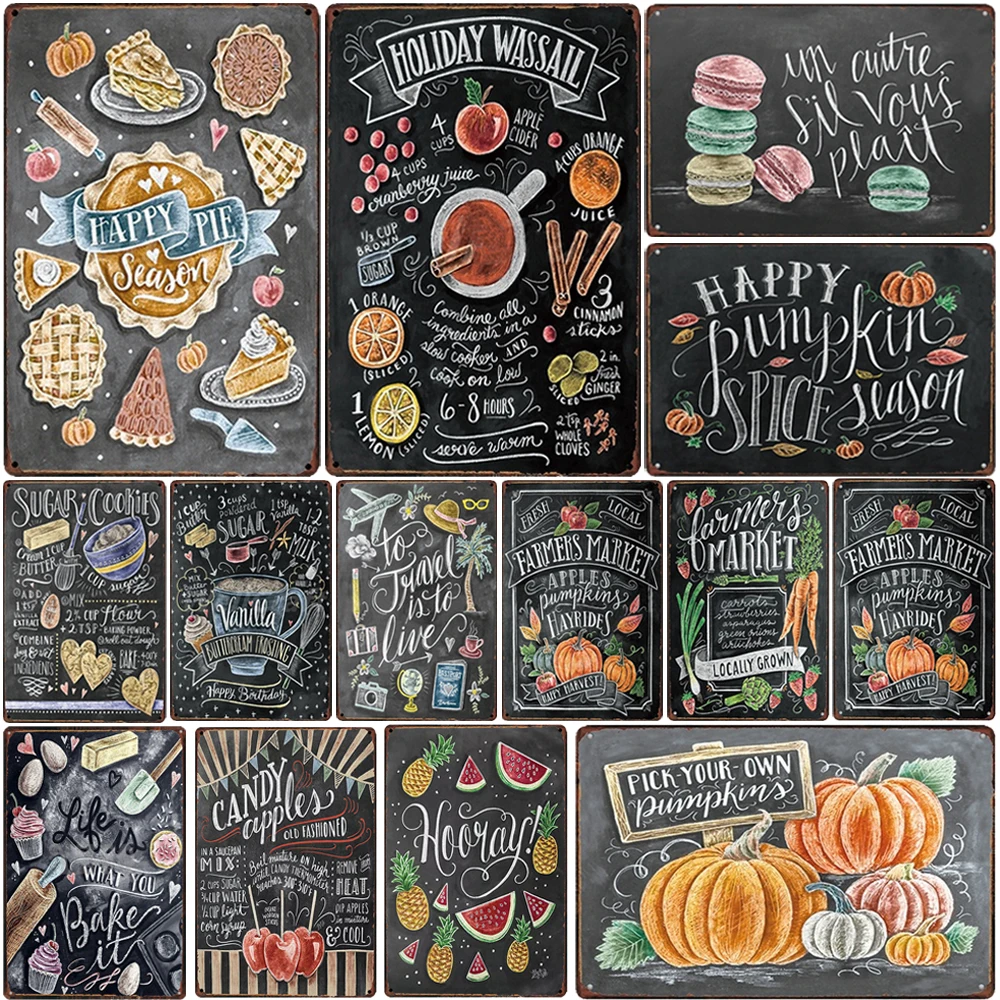 HAPPY PIE
Season
HOLIDAY WASSAIL
4
CUPS
APPLE
CIDER
4 CUPS
cranberry juice
4 CUPS ORANGE
JUICE
1/3 CUP
BROWN
SUGAR
3
CINNAMON
sticks
1 ORANGE
(SLICED)
Combine all
ingredients in a
slow cooker AND
cook on low
6-8 HOURS
serve warm
2 in.
fresh
GINGER
SLICED
1
LEMON (SLICED)
2 tsp
WHOLE
CLOVES
un autre,
s'il vous
plaît
HAPPY
pumpkin
SPICE season
SUGAR COOKIES
Cream 1 CUP
BUTTER
1 CUP sugar
ADD
1 EGG
EXTRACT
MIX
2 3/4 CUP flour
2 TSP BAKING POWDER
COMBINE
dry & wet
INGREDIENTS
Roll out dough
BAKE
1 CUP
Butter
3 cups
powdered
SUGAR
1 tsp
Vanilla
1-2
TBSP
MILK
MIX
butter
+ SUGAR
Vanilla
BUTTERCREAM FROSTING
Happy Birthday
to
Travel
is to
live
PASSPORT
FRESH LOCAL
FARMER'S MARKET
APPLES
pumpkins
HAYRIDES
HAPPY HARVEST!
farmers
MARKET
carrots
strawberries
asparagus
green onions
artichokes
LOCALLY GROWN
FRESH LOCAL
FARMER'S MARKET
APPLES
pumpkins
HAYRIDES
HAPPY HARVEST!
Life is
WHAT YOU
Bake
it
CANDY
apples
OLD FASHIONED
IN A SAUCEPAN
MIX:
2 CUPS SUGAR
3/4 CUP WATER
1/2 CUP light
corn syrup
Boil mixture on high
until CANDY THERMOMETER
reaches 300°-310°
REMOVE from
HEAT,
DIP APPLES
in mixture
& COOL
Hooray!
PICK-YOUR-OWN
pumpkins